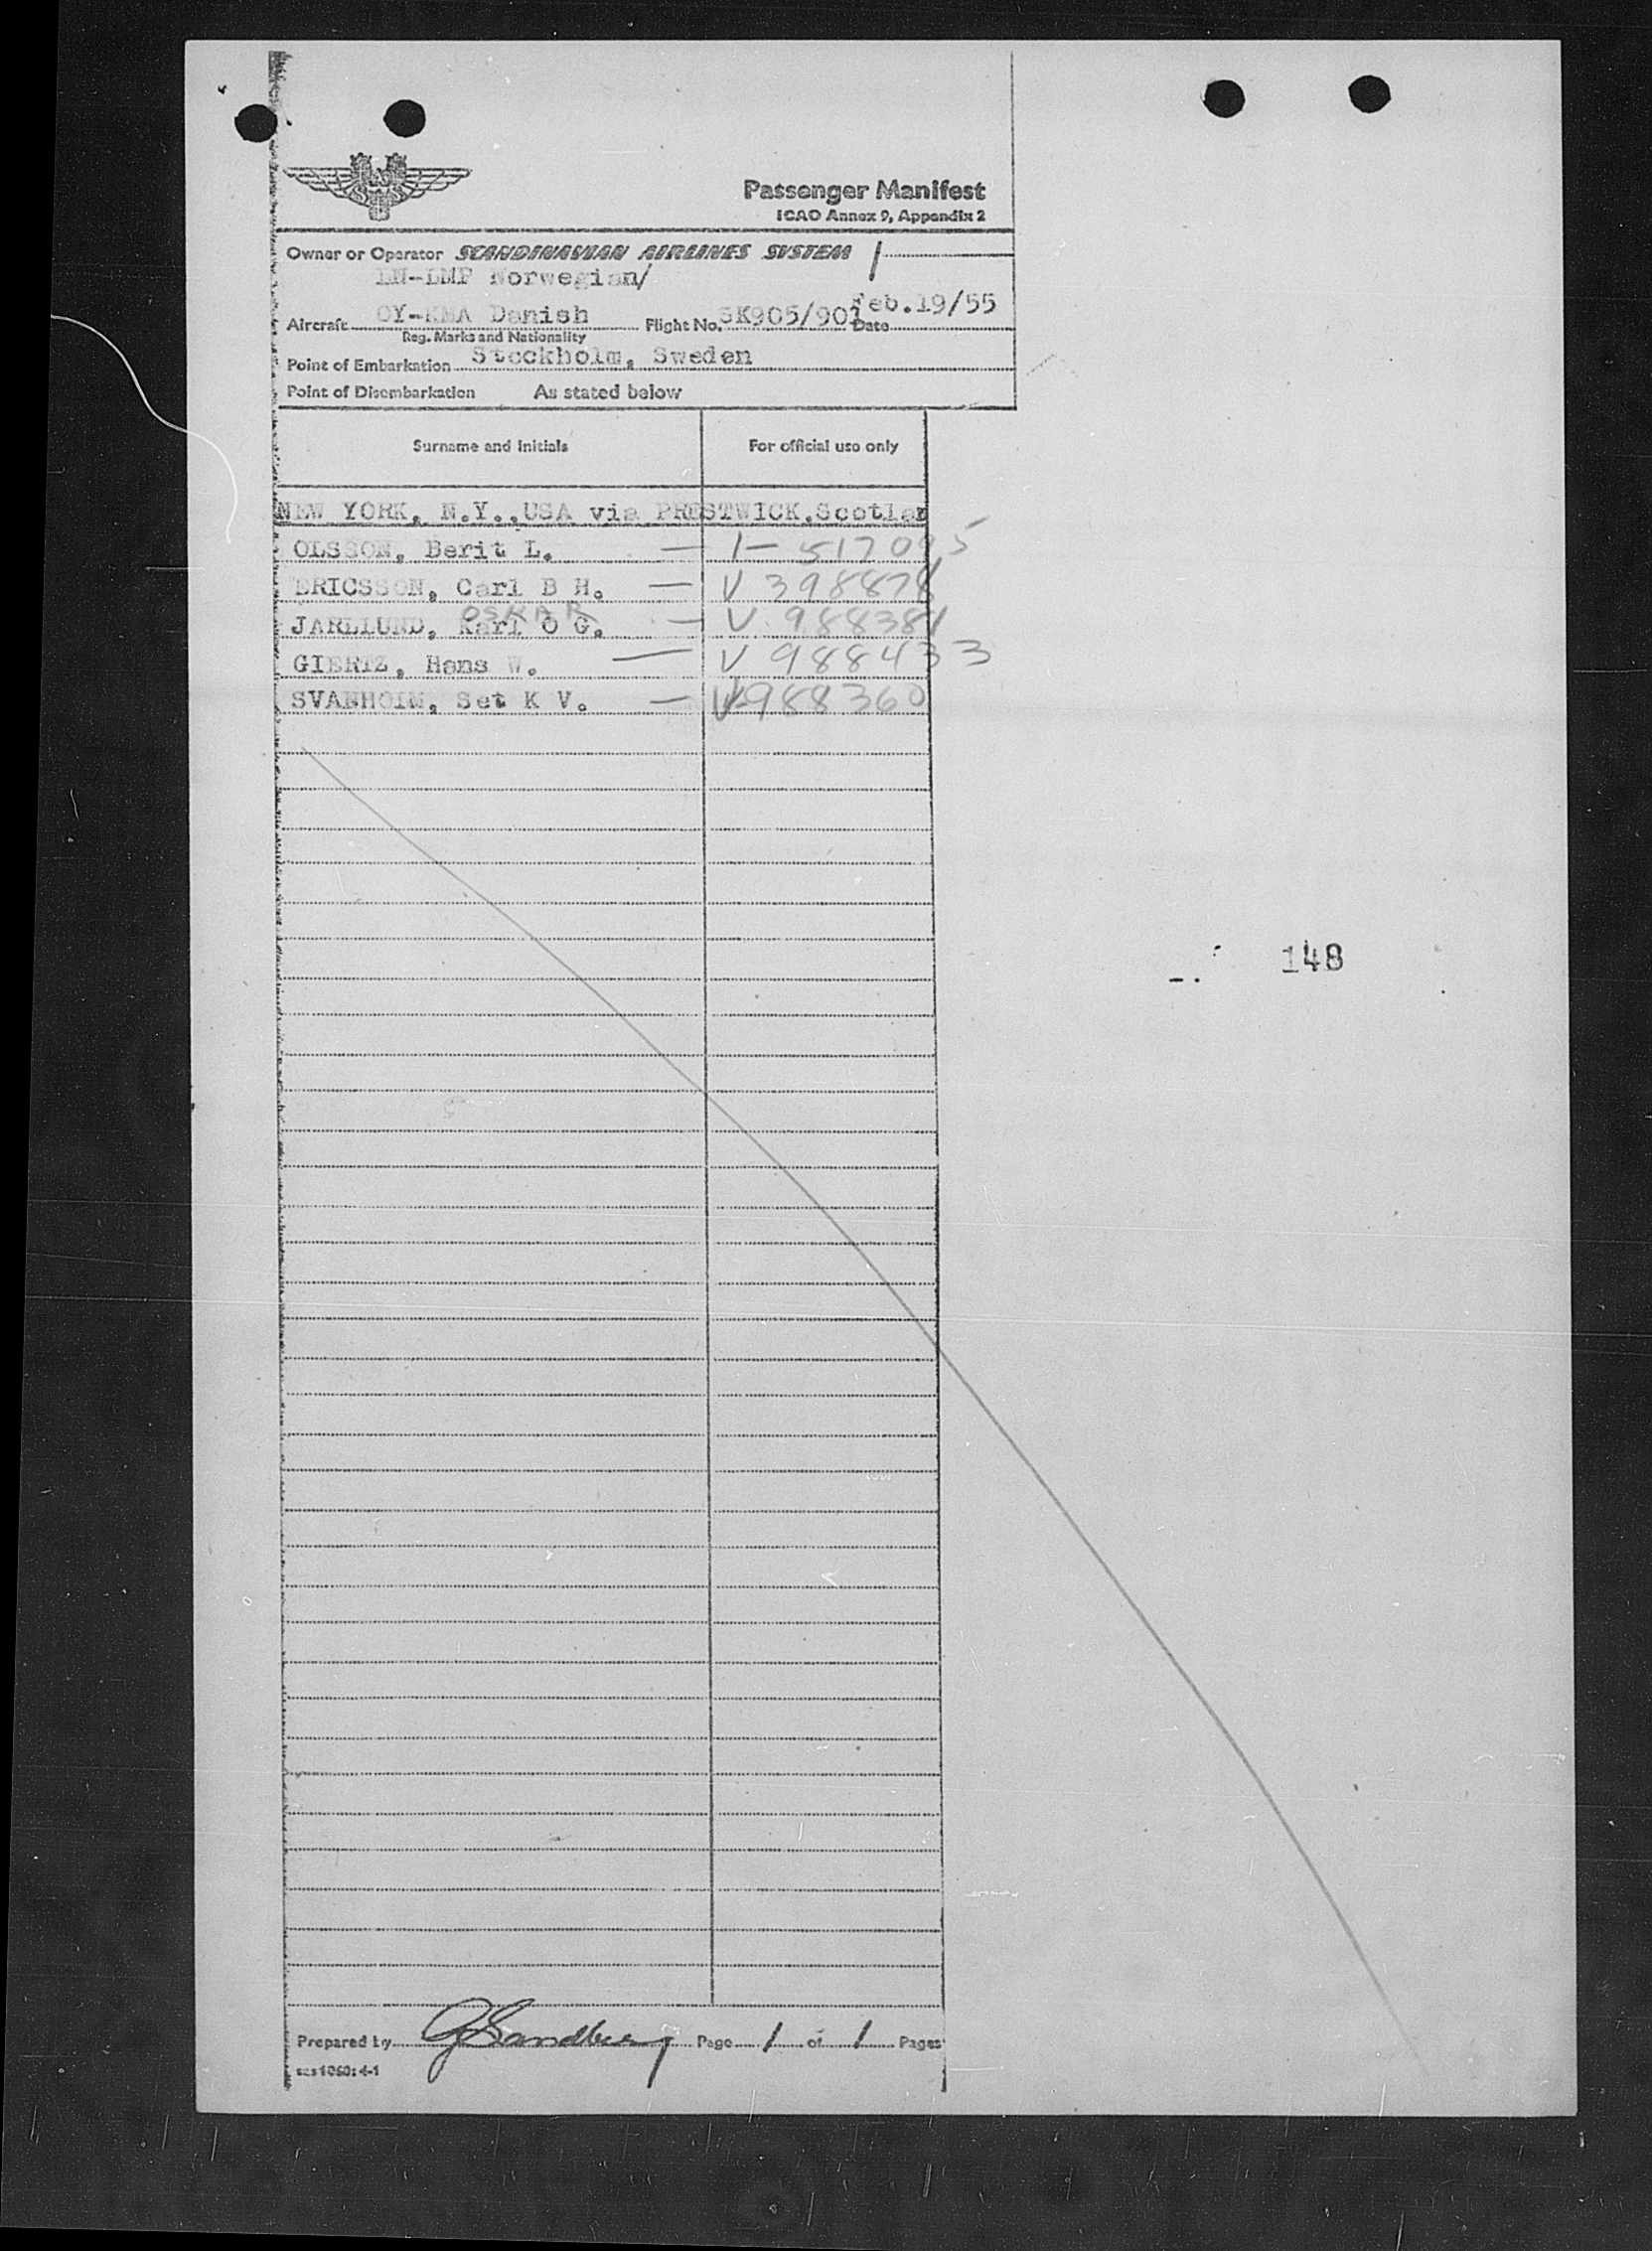 Passenger Manifest
ICAO Annex 9, Appendix 2
Owner or Operator SCANDINAVIAN AIRLINES SYSTEM
LN-LMP Norwegian/
Aircraft OY-KMA Danish Flight No. SK905/901 Date Feb.19/55
Reg. Marks and Nationality
Point of Embarkation Stockholm, Sweden
Point of Disembarkation As stated below
Surname and Initials For official use only
NEW YORK, N.Y.,USA via PRESTWICK,Scotlan
OLSSON, Berit L. — I- 517095
ERICSSON, Carl B H. — V 398878
OSKAR
JARLLUND, Karl O G. — V 988381
GIERTZ, Hans W. — V 988433
SVANHOLM, Set K V. — V 988360
148
Prepared by G Sandberg Page 1 of 1 Pages
sas 1060:4-1